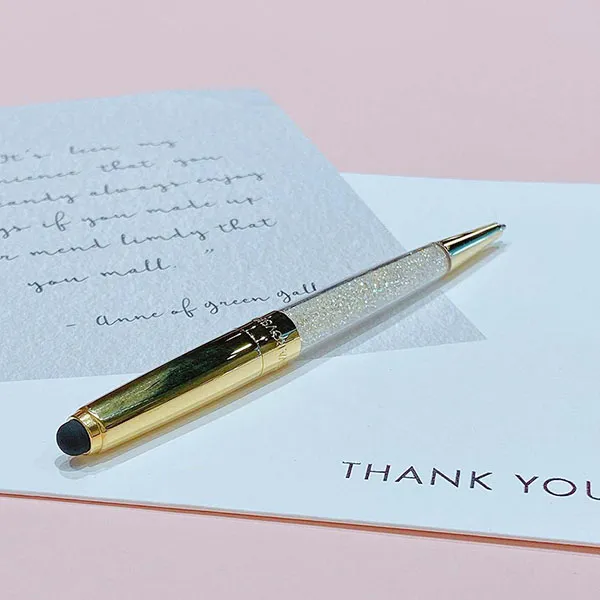 It's been my
rience that you
andy always enjoy
gs if you made up
r mend limdy that
you mall. "
- anne of green gall
THANK YOU